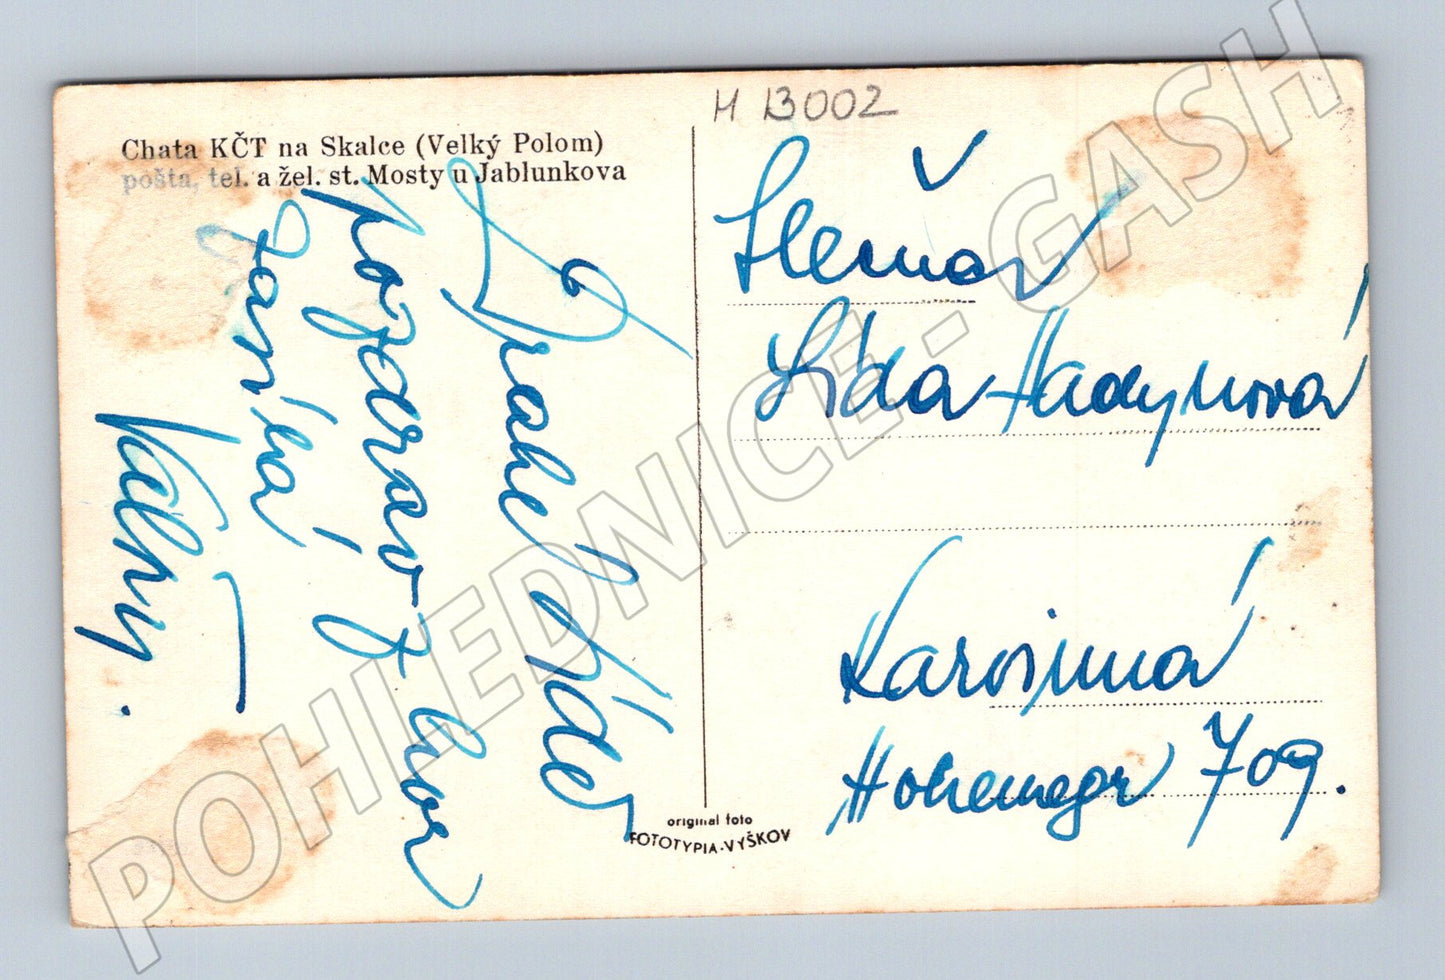 H 13002
Chata KČT na Skalce (Velký Polom)
pošta, tel. a žel. st. Mosty u Jablunkova
Drahé Lídě
pozdrav z hor
zasílá
Slečna
Lída Hadynová
Karviná
Hohenegr 709.
original foto
FOTOTYPIA-VYŠKOV
POHLEDNICE - GASH